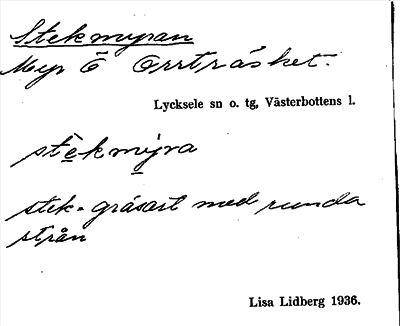 Stekmyran
Myr Ö Orrträsket.
Lycksele sn o. tg, Västerbottens l.
stèkmýra
stek = gräsart med runda
strån
Lisa Lidberg 1936.